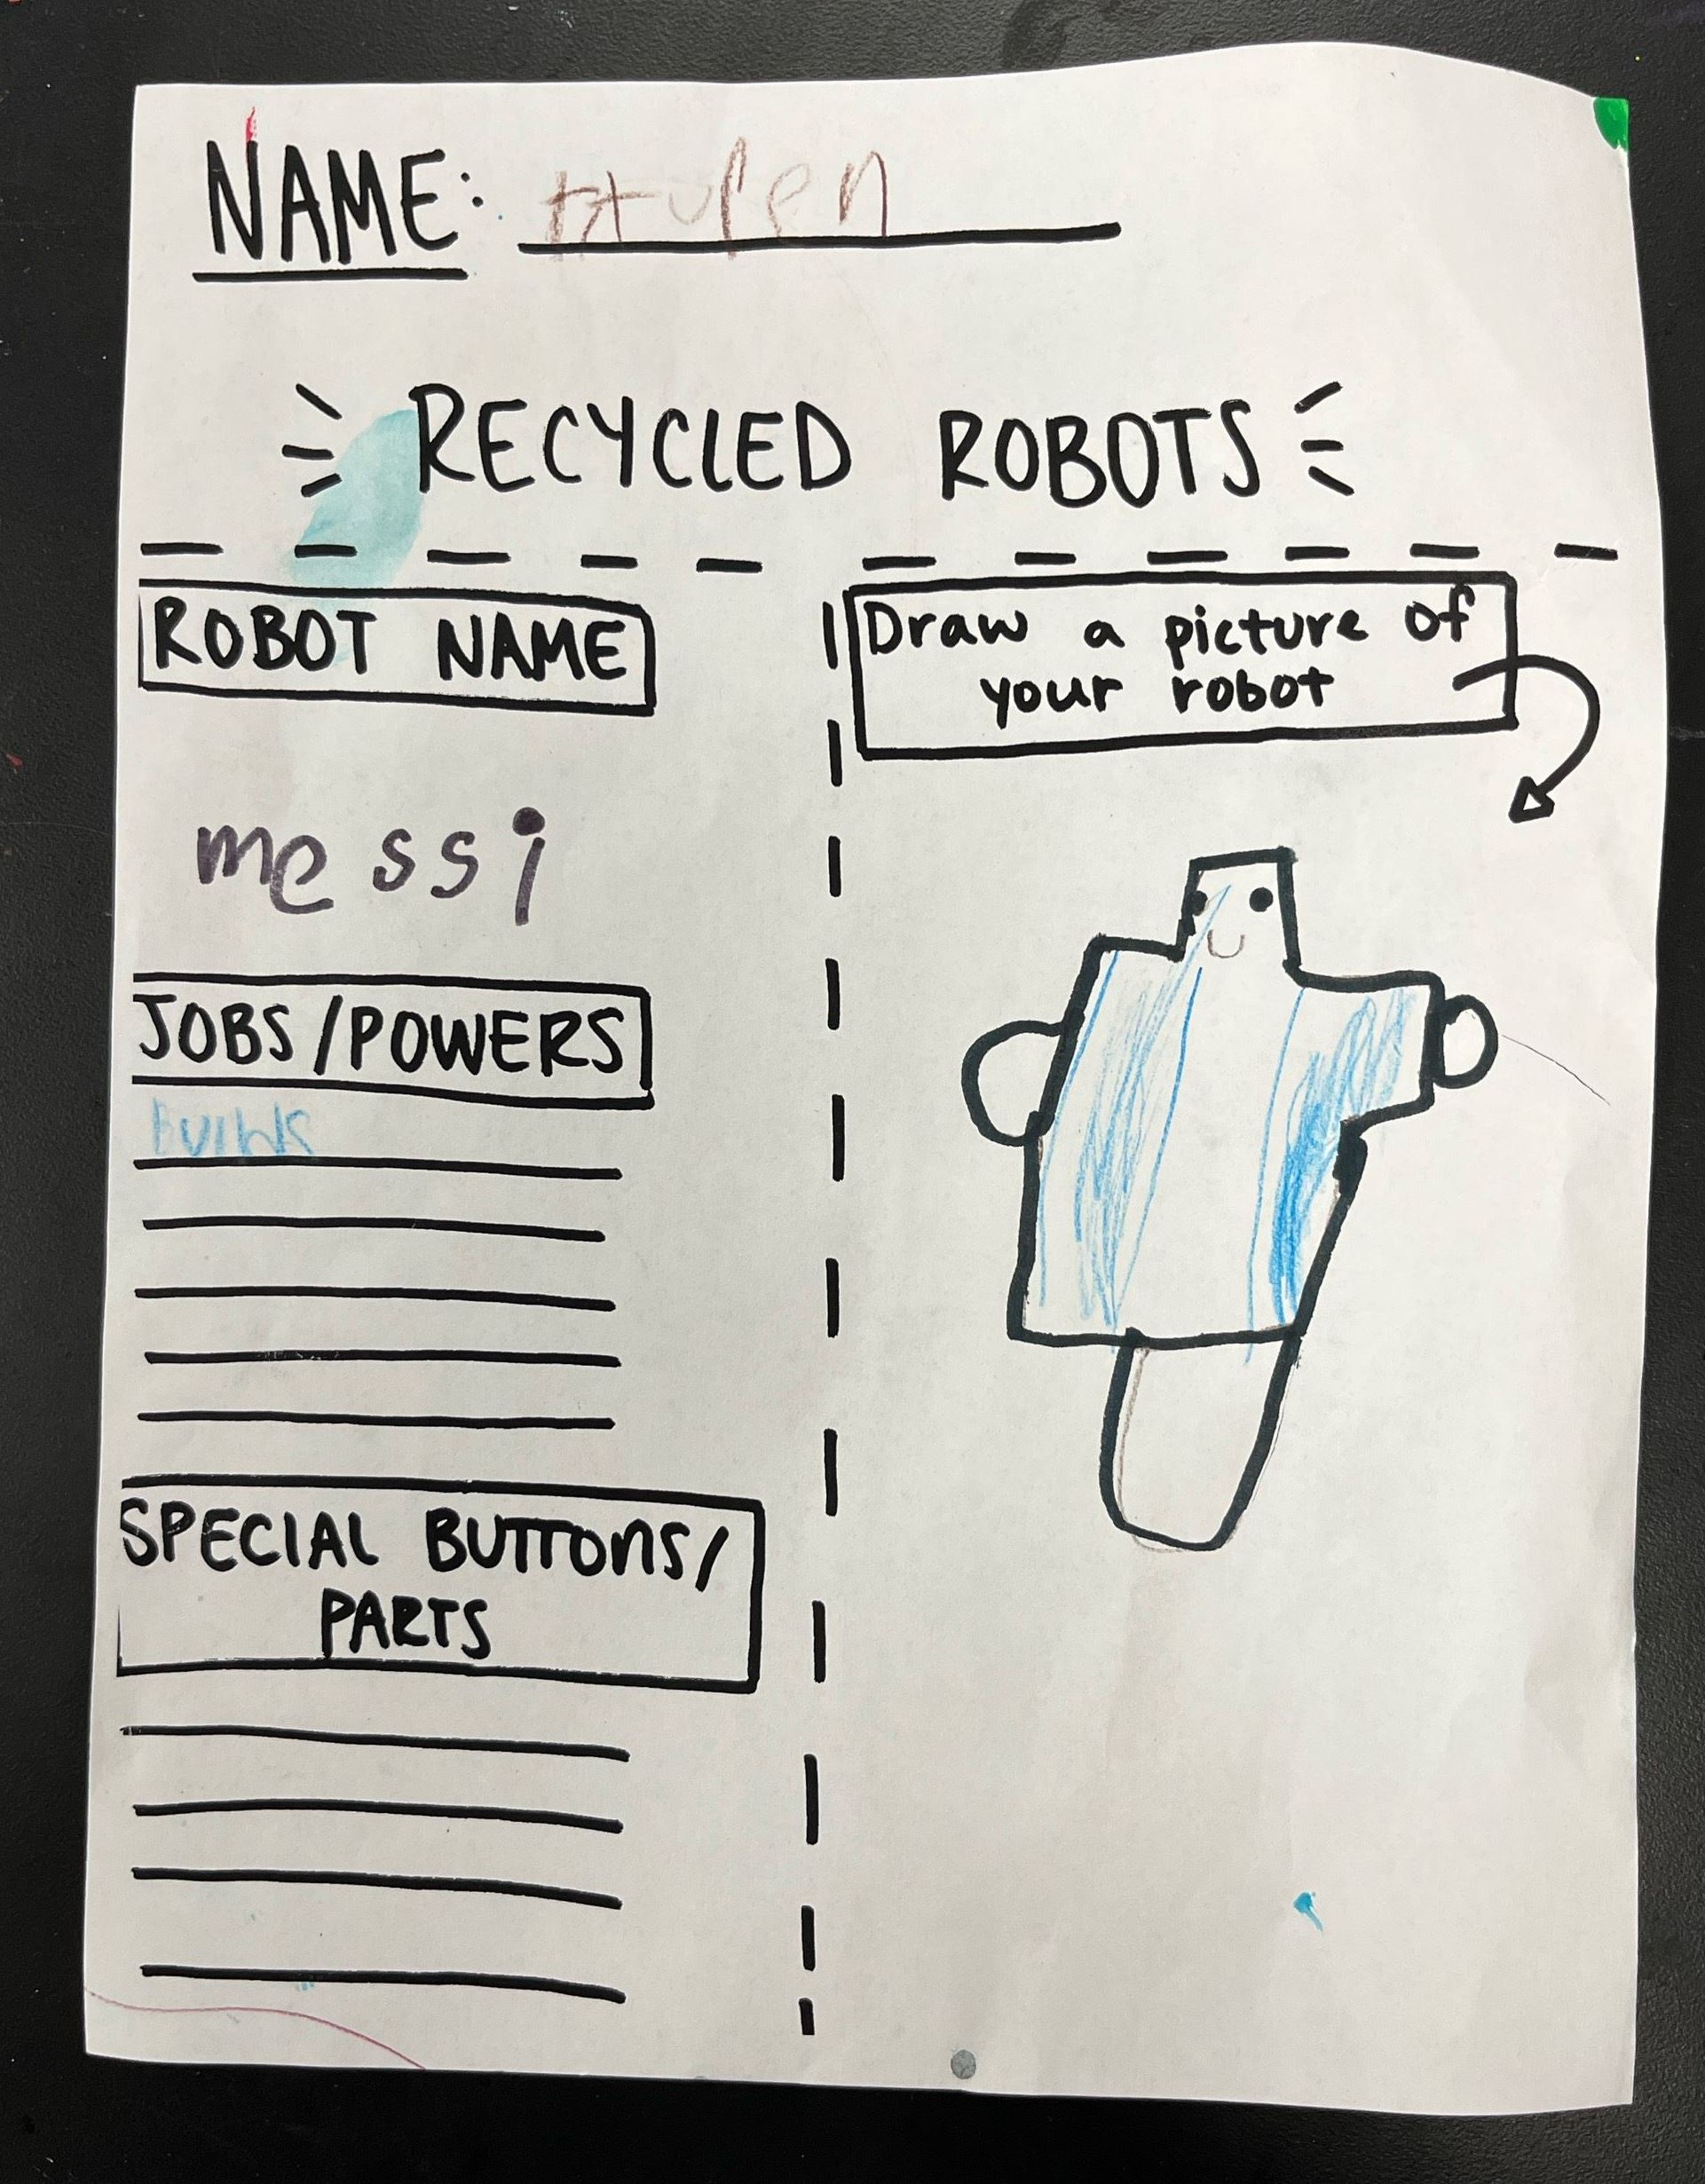 NAME:
RECYCLED ROBOTS
ROBOT NAME
messi
JOBS/POWERS
SPECIAL BUTTONS/
PARTS
Draw a picture of
your robot